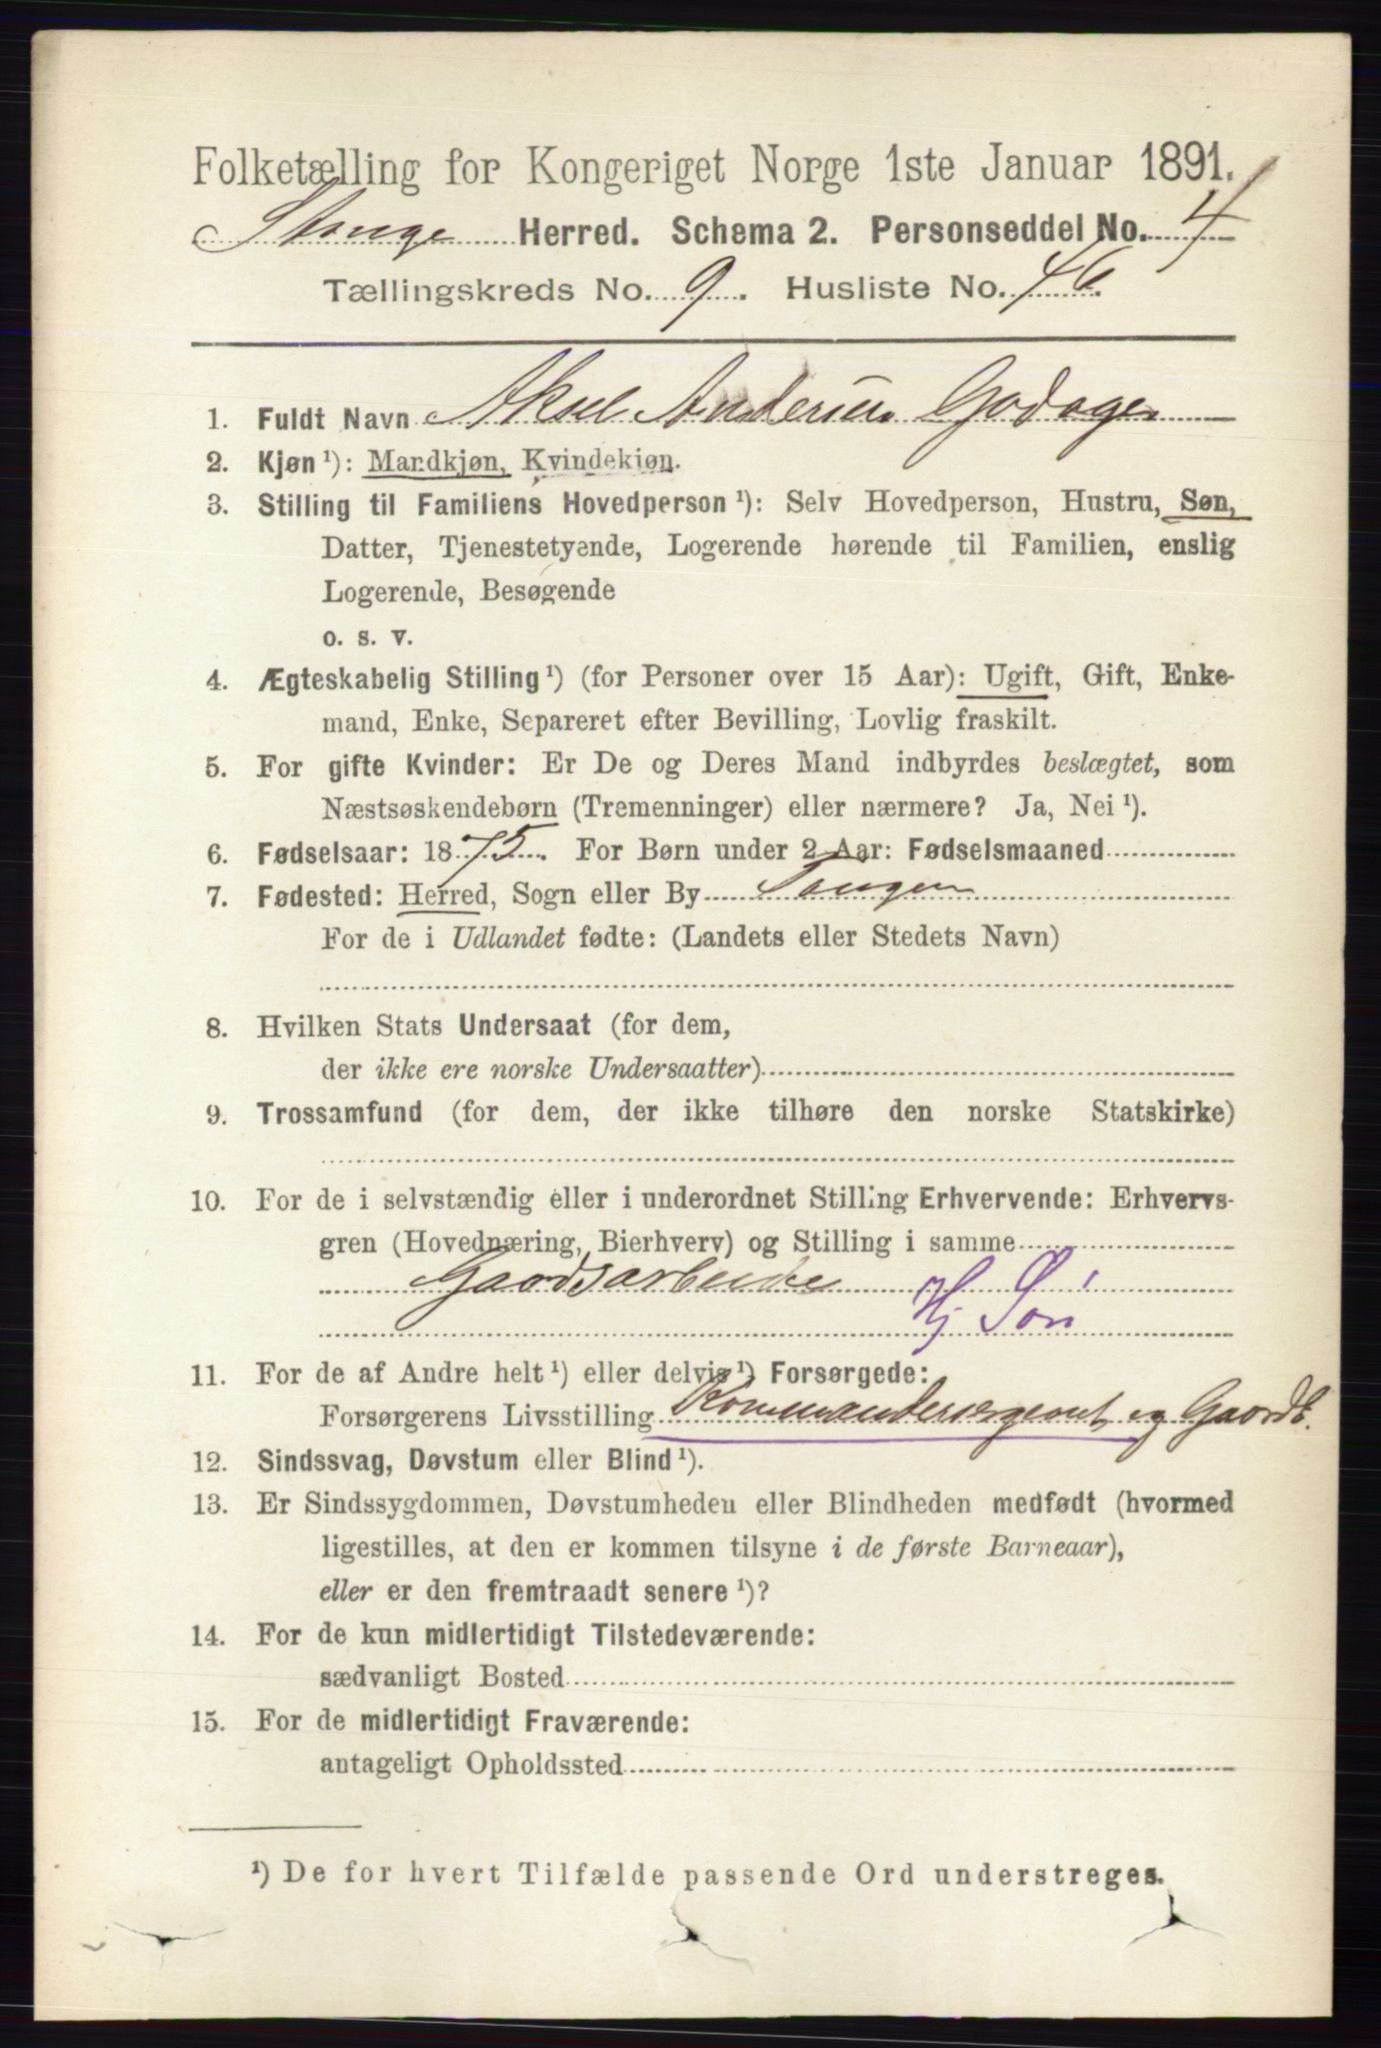 Folketælling for Kongeriget Norge 1ste Januar 1891.
Stange Herred. Schema 2. Personseddel No. 4
Tællingskreds No. 9. Husliste No. 46.
1. Fuldt Navn Aksel Andersen Godager
2. Kjøn ¹): Mandkjøn, Kvindekjøn.
3. Stilling til Familiens Hovedperson ¹): Selv Hovedperson, Hustru, Søn,
Datter, Tjenestetyende, Logerende hørende til Familien, enslig
Logerende, Besøgende
o. s. v.
4. Ægteskabelig Stilling ¹) (for Personer over 15 Aar): Ugift, Gift, Enke-
mand, Enke, Separeret efter Bevilling, Lovlig fraskilt.
5. For gifte Kvinder: Er De og Deres Mand indbyrdes beslægtet, som
Næstsøskendebørn (Tremenninger) eller nærmere? Ja, Nei ¹).
6. Fødselsaar: 1875. For Børn under 2 Aar: Fødselsmaaned
7. Fødested: Herred, Sogn eller By Tangen
For de i Udlandet fødte: (Landets eller Stedets Navn)
8. Hvilken Stats Undersaat (for dem,
der ikke ere norske Undersaatter)
9. Trossamfund (for dem, der ikke tilhøre den norske Statskirke)
10. For de i selvstændig eller i underordnet Stilling Erhvervende: Erhvervs-
gren (Hovednæring, Bierhverv) og Stilling i samme
Gaardsarbeide
Hj Søn
11. For de af Andre helt ¹) eller delvis ¹) Forsørgede:
Forsørgerens Livsstilling Kommandersergeant og Gaardb.
12. Sindssvag, Døvstum eller Blind ¹).
13. Er Sindssygdommen, Døvstumheden eller Blindheden medfødt (hvormed
ligestilles, at den er kommen tilsyne i de første Barneaar),
eller er den fremtraadt senere ¹)?
14. For de kun midlertidigt Tilstedeværende:
sædvanligt Bosted
15. For de midlertidigt Fraværende:
antageligt Opholdssted
¹) De for hvert Tilfælde passende Ord understreges.